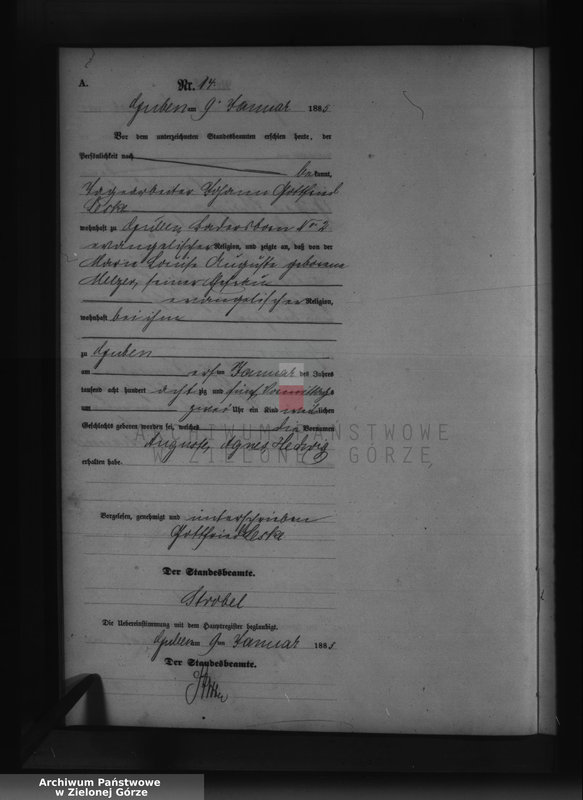 A.
Nr. 14.
Guben am 9. Januar 1885
Vor dem unterzeichneten Standesbeamten erschien heute, der
Persönlichkeit nach
bekannt,
Johann Gottfried
Leske
wohnhaft zu Guben, No 2
evangelischer Religion, und zeigte an, daß von der
Marie Louise Auguste geborene
Melzer, seiner Ehefrau
evangelischer Religion,
wohnhaft bei ihm
zu Guben
am ersten Januar des Jahres
tausend acht hundert achtzig und fünf Vormittags
um zwei Uhr ein Kind weiblichen
Geschlechts geboren worden sei, welches die Vornamen
Auguste, Agnes, Hedwig
erhalten habe.
Vorgelesen, genehmigt und unterschrieben
Gottfried Leske
Der Standesbeamte.
Strobel
Die Uebereinstimmung mit dem Hauptregister beglaubigt.
Guben am 9ten Januar 1885
Der Standesbeamte.
ARCHIWUM PAŃSTWOWE
W ZIELONEJ GÓRZE
Archiwum Państwowe
w Zielonej Górze